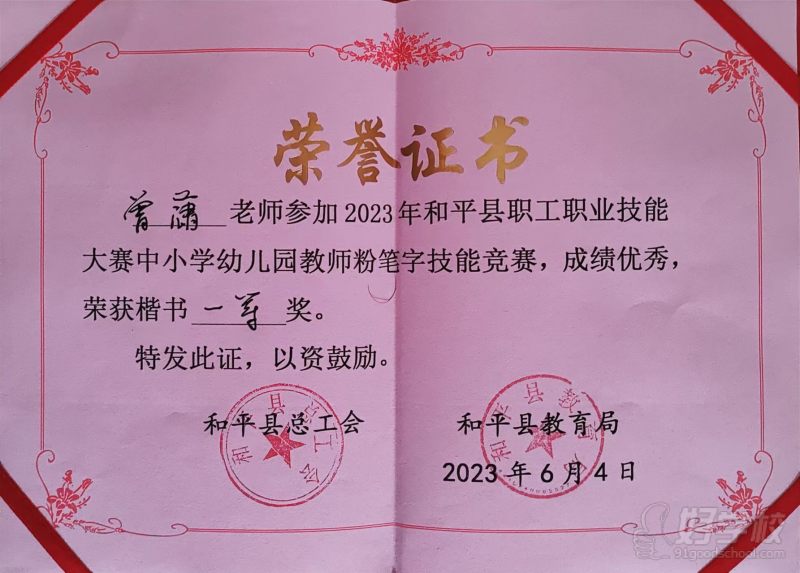 荣誉证书
曾蕭 老师参加 2023 年和平县职工职业技能
大赛中小学幼儿园教师粉笔字技能竞赛，成绩优秀，
荣获楷书 一等 奖。
特发此证，以资鼓励。
和平县总工会
和平县教育局
2023 年 6 月 4 日
好学校
91goodschool.com